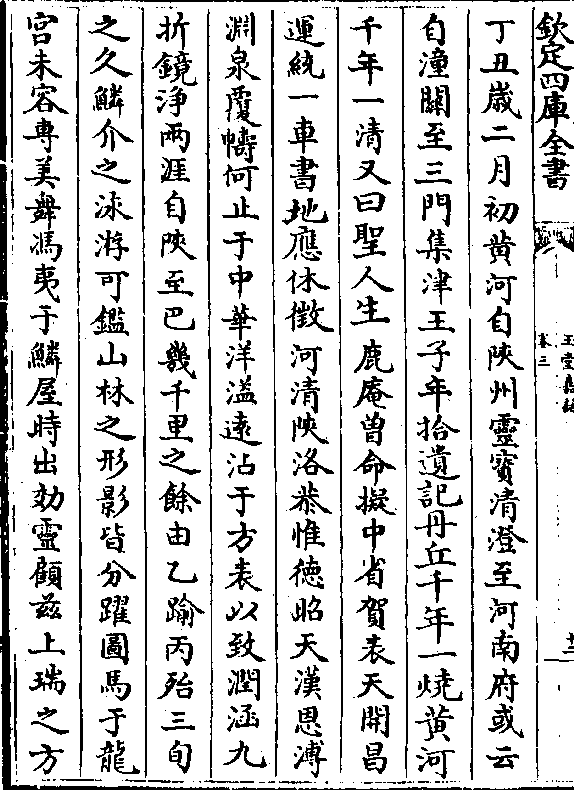 欽定四庫全書
玉堂嘉話
卷三
丁丑歲二月初黄河自陜州靈寳清澄至河南府或云
自潼關至三門集津王子年拾遺記丹丘千年一燒黄河
千年一清又曰聖人生鹿庵曽命擬中省賀表天開昌
運統一車書地應休徴河清陜洛恭惟徳昭天漢恩溥
淵泉覆幬何止于中華洋溢逺沾于方表以致潤涵九
折鏡浄兩涯自陜至巴㡬千里之餘由乙踰丙殆三旬
之久鱗介之泳游可鑑山林之形影皆分躍圖馬于龍
宫未容專美舞馮夷于鱗屋時出効靈顧兹上瑞之方